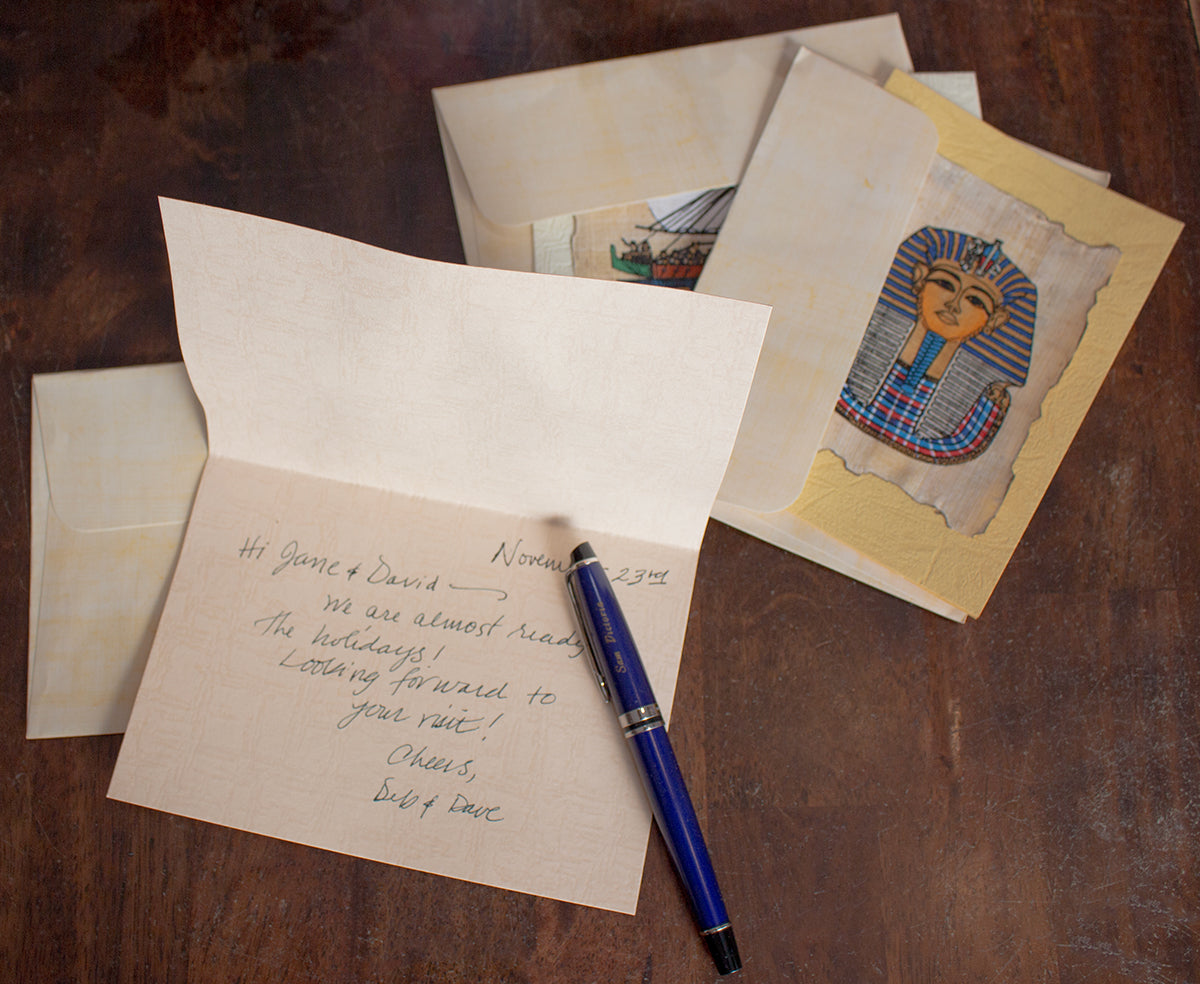 November 23rd
Hi Jane & David —
We are almost ready
the holidays!
Looking forward to
your visit!
Cheers,
Deb & Dave
Sam Victoria